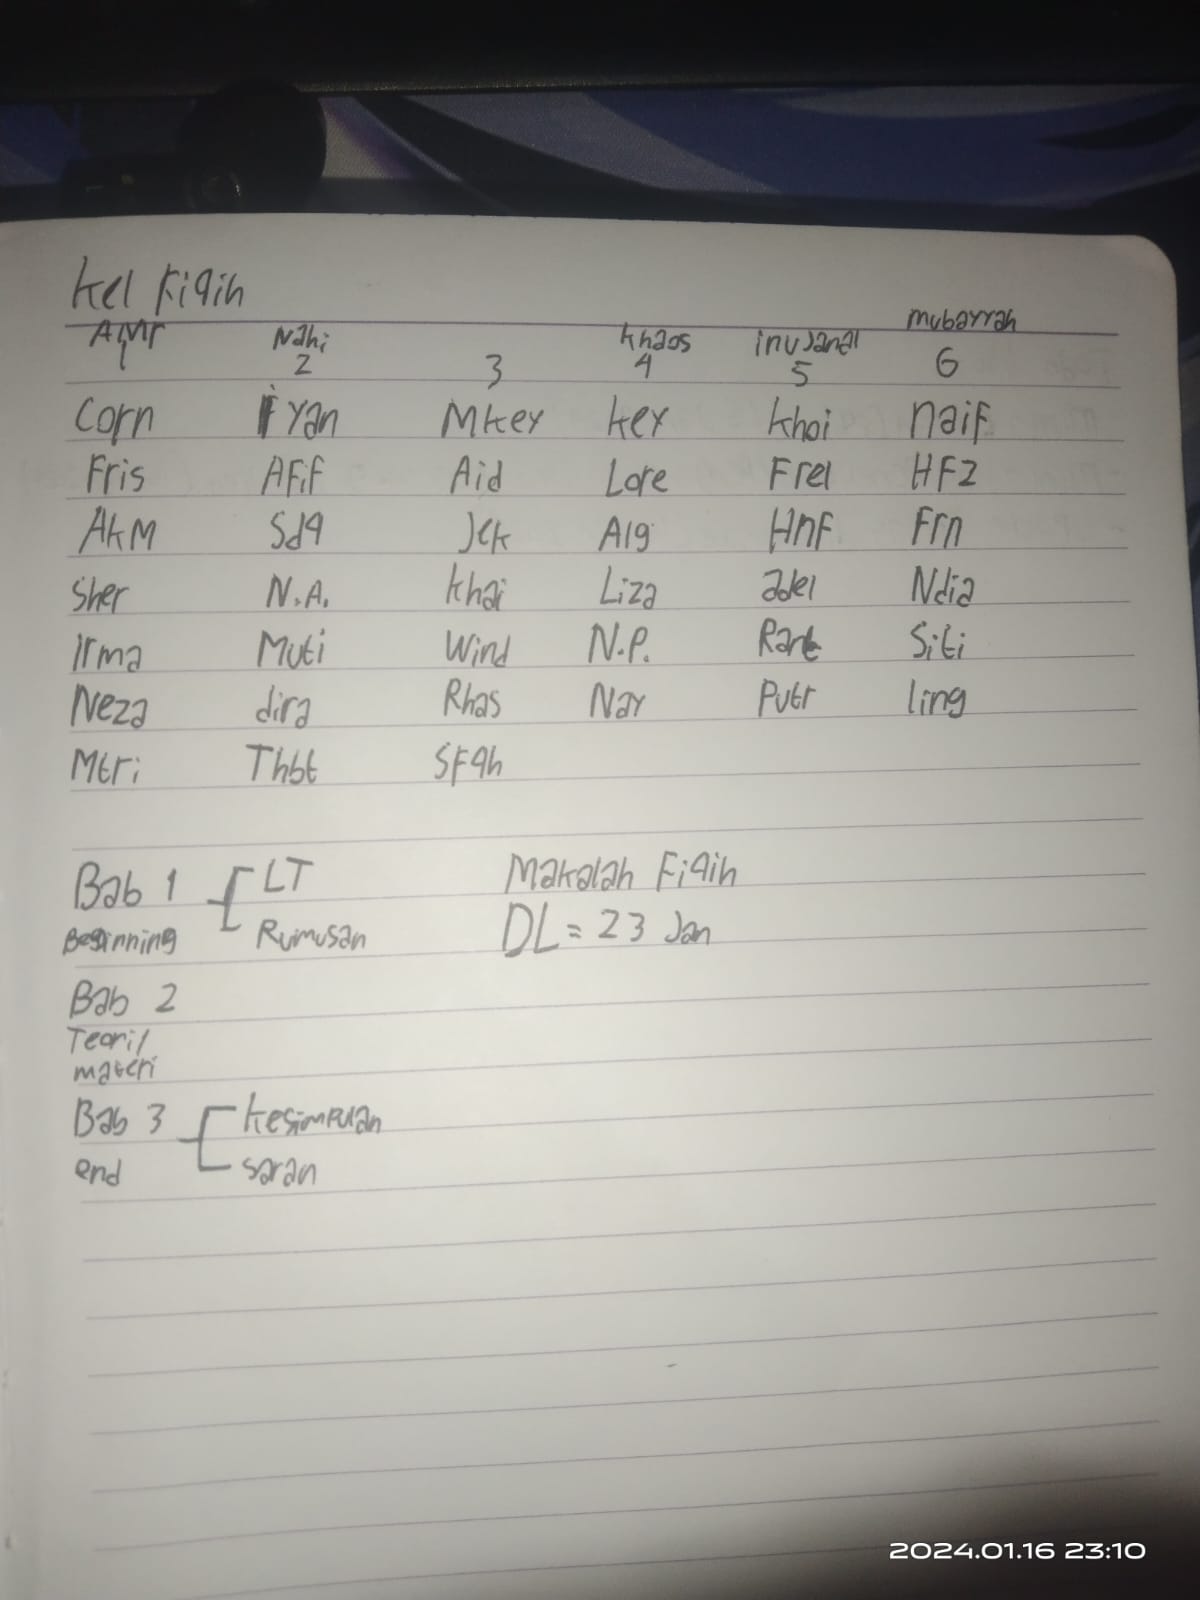 Kel Fiqih
AMr Nahi khaos inuJanal mubayyah
1 2 3 4 5 6
Corn iyan Mkey key khoi naif
Fris AFif Aid Lore Frel HFZ
AkM Sdq Jek Alg HnF Frn
Sher N.A. khai Liza adel Ndia
Irma Muti Wind N.P. Siti
Neza dira Rhas Nay Putr ling
Mtri Thbt SFqh
Bab 1 LT Makalah Fiqih
Beginning Rumusan DL = 23 Jan
Bab 2
Teori/
materi
Bab 3 kesimpulan
end saran
2024.01.16 23:10